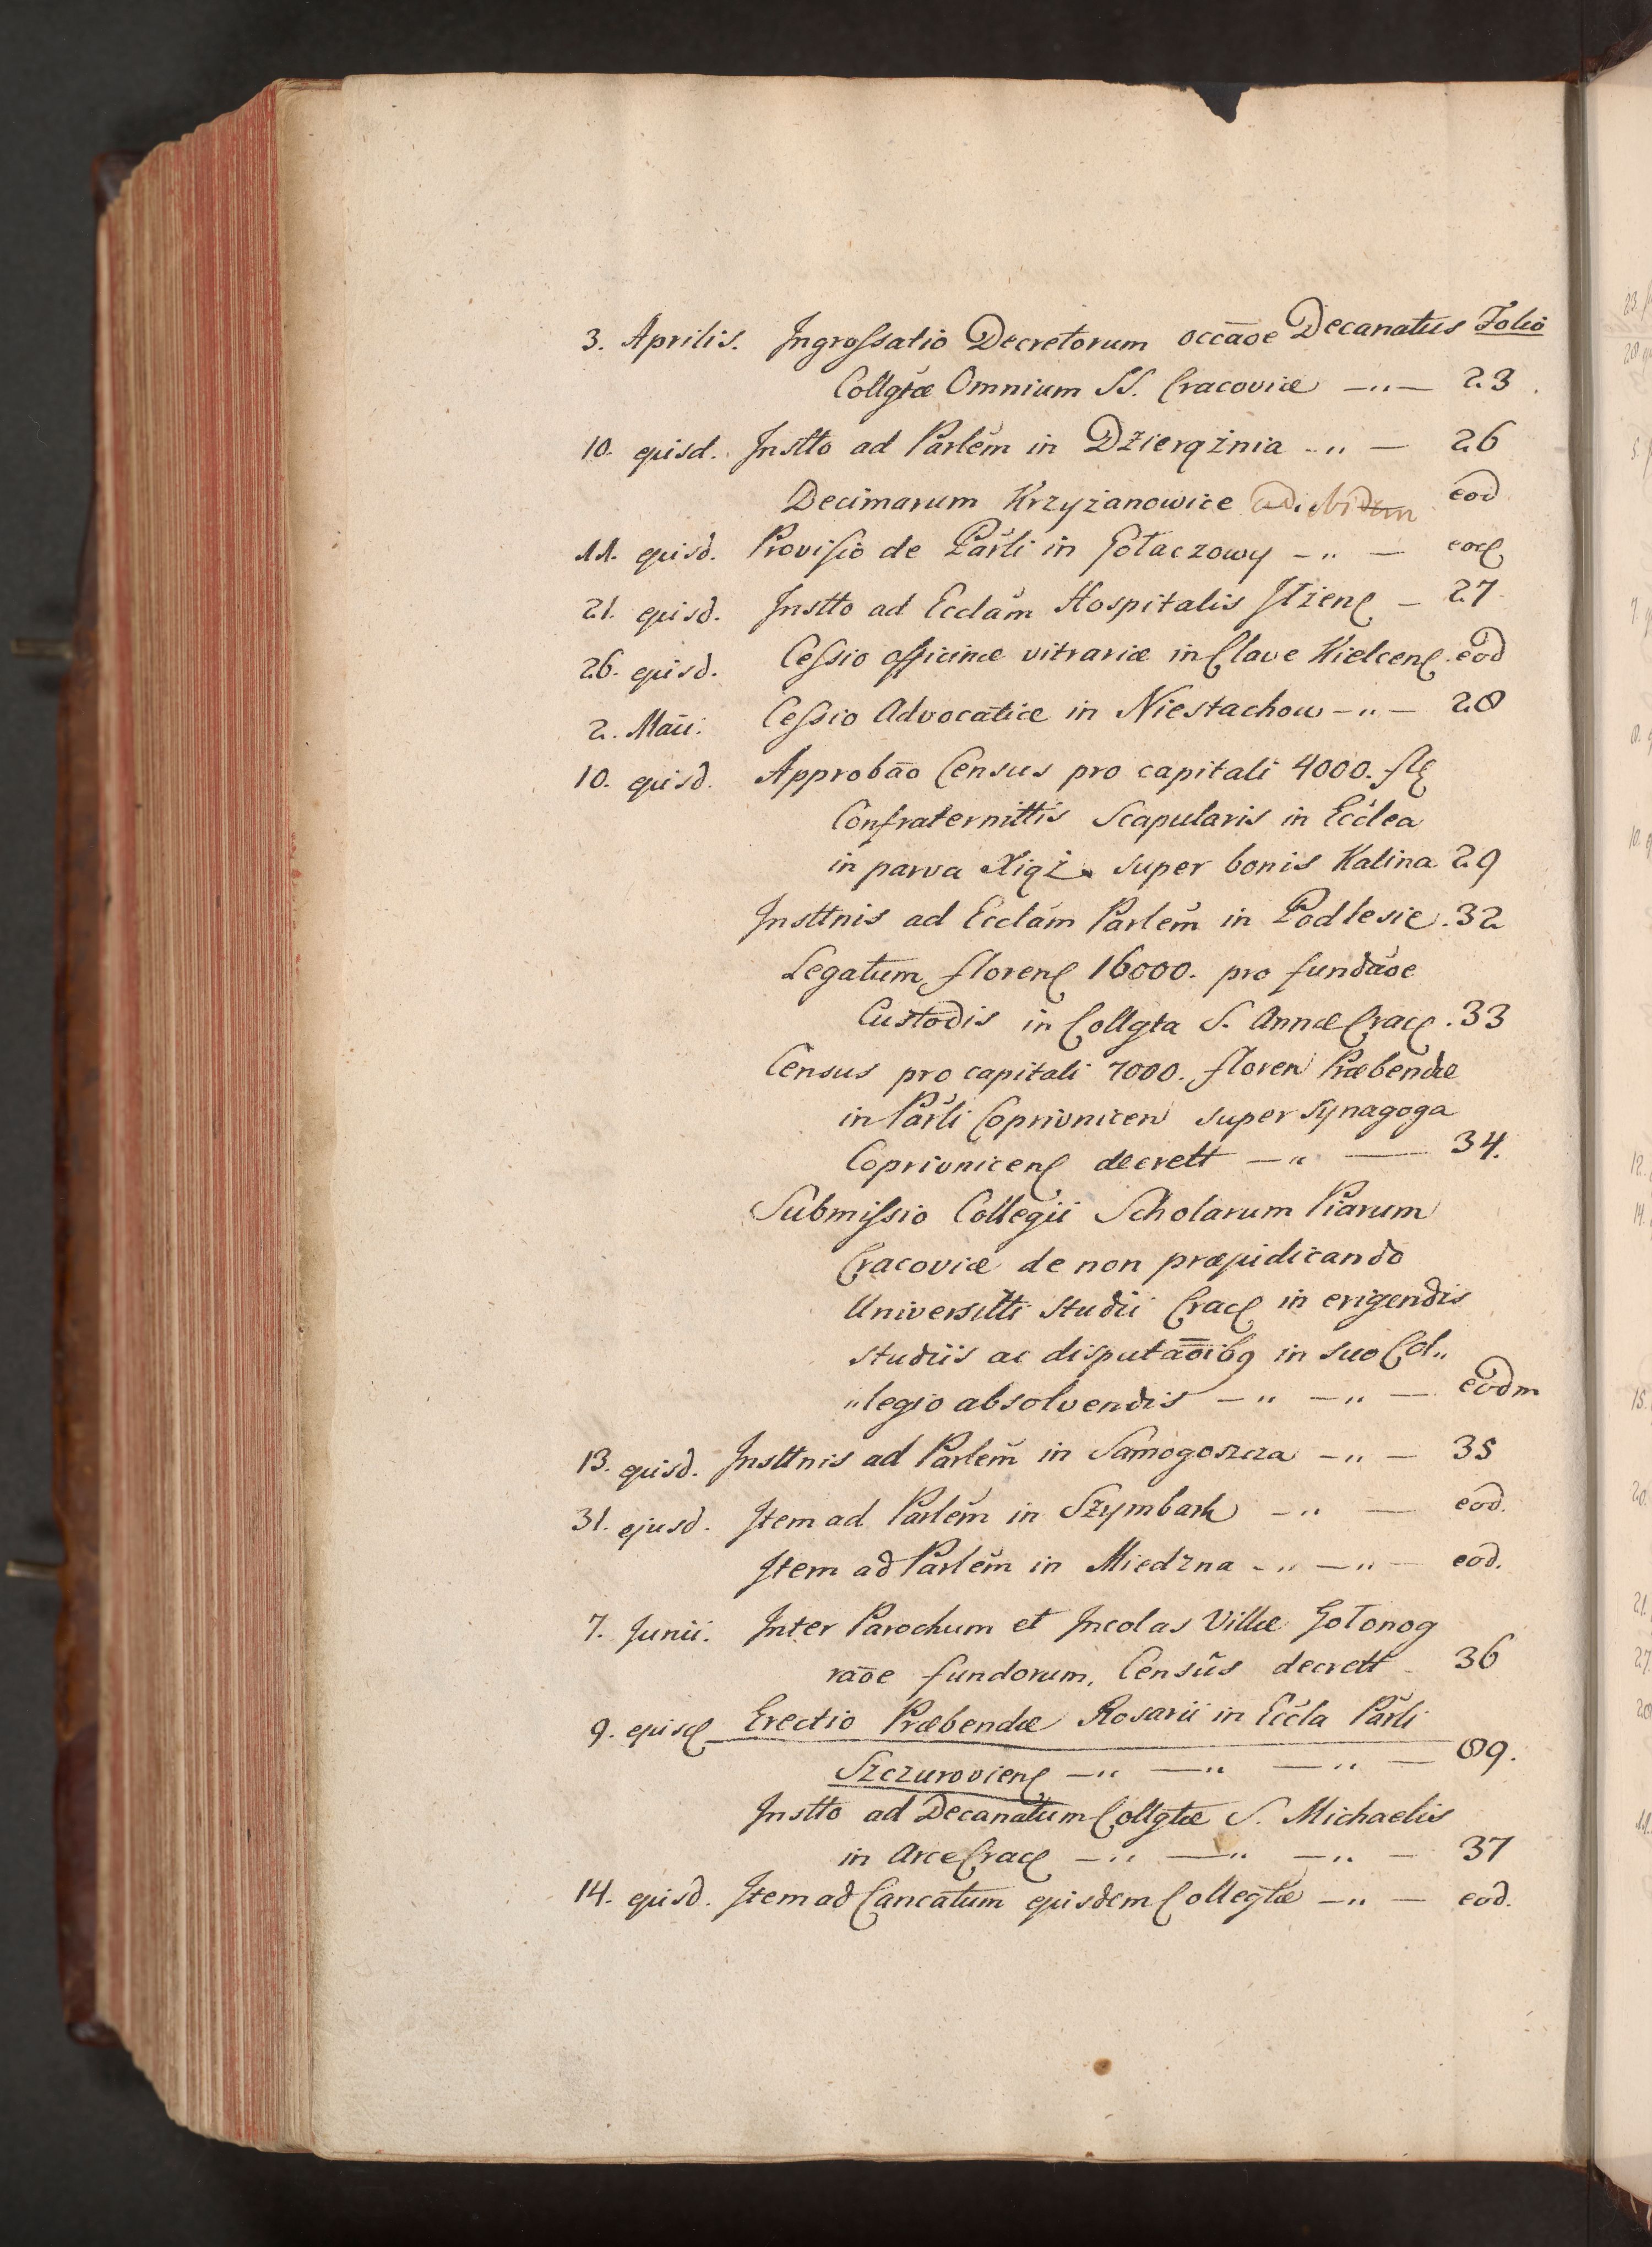 3. Aprilis. Ingrossatio Decretorum occāoe Decanatus Folio
Collgtæ Omnium SS. Cracoviæ —"— 23
10. ejusd. Instto ad Parlem in Dzierążnia -" — 26
Decimarum Krzyżanowice eod
11. ejusd. Provisio de Parli in Gołaczowy -" — eod
21. ejusd. Instto ad Ecclam Hospitalis Iłżenꝭ — 27
26. ejusd. Cessio officinæ vitrariæ in Clave Kielcenꝭ. eod
2. Maii. Cessio Advocatiæ in Niestachow -" — 28
10. ejusd. Approbāo Census pro capitali 4000. flꝭ
Confraternittis Scapularis in Ecclea
in parva Xiąż super bonis Kalina 29
Insttnis ad Ecclam Parlem in Podlesie. 32
Legatum florenꝭ 16000. pro fundāoe
Custodis in Collgta S. Annæ Cracꝭ. 33
Census pro capitali 7000. floren Præbendæ
in Parli Coprivnicen super synagoga
Coprivnicenꝭ decrett —" — 34.
Submissio Collegii Scholarum Piarum
Cracoviæ de non præjudicando
Universitti studii Cracꝭ in erigendis
studiis ac disputāoibꝯ in suo Col„
„legio absolvendis —" —" — eodm
13. ejusd. Insttnis ad Parlem in Samogoszcza —" — 35
31. ejusd. Item ad Parlem in Szymbark -" — eod.
Item ad Parlem in Miedzna -" —" — eod.
7. Junii. Inter Parochum et Incolas Villæ Gołonog
rāoe fundorum, Censûs decrett - 36
9. ejusd Erectio Præbendæ Rosarii in Eccla Parli
Szczurovienꝭ —" —" —" — 89.
Instto ad Decanatum Collgtæ S. Michaelis
in Arce Cracꝭ —" —" —" — 37
14. ejusd. Item ad Cancatum ejusdem Collegtæ —" — eod.